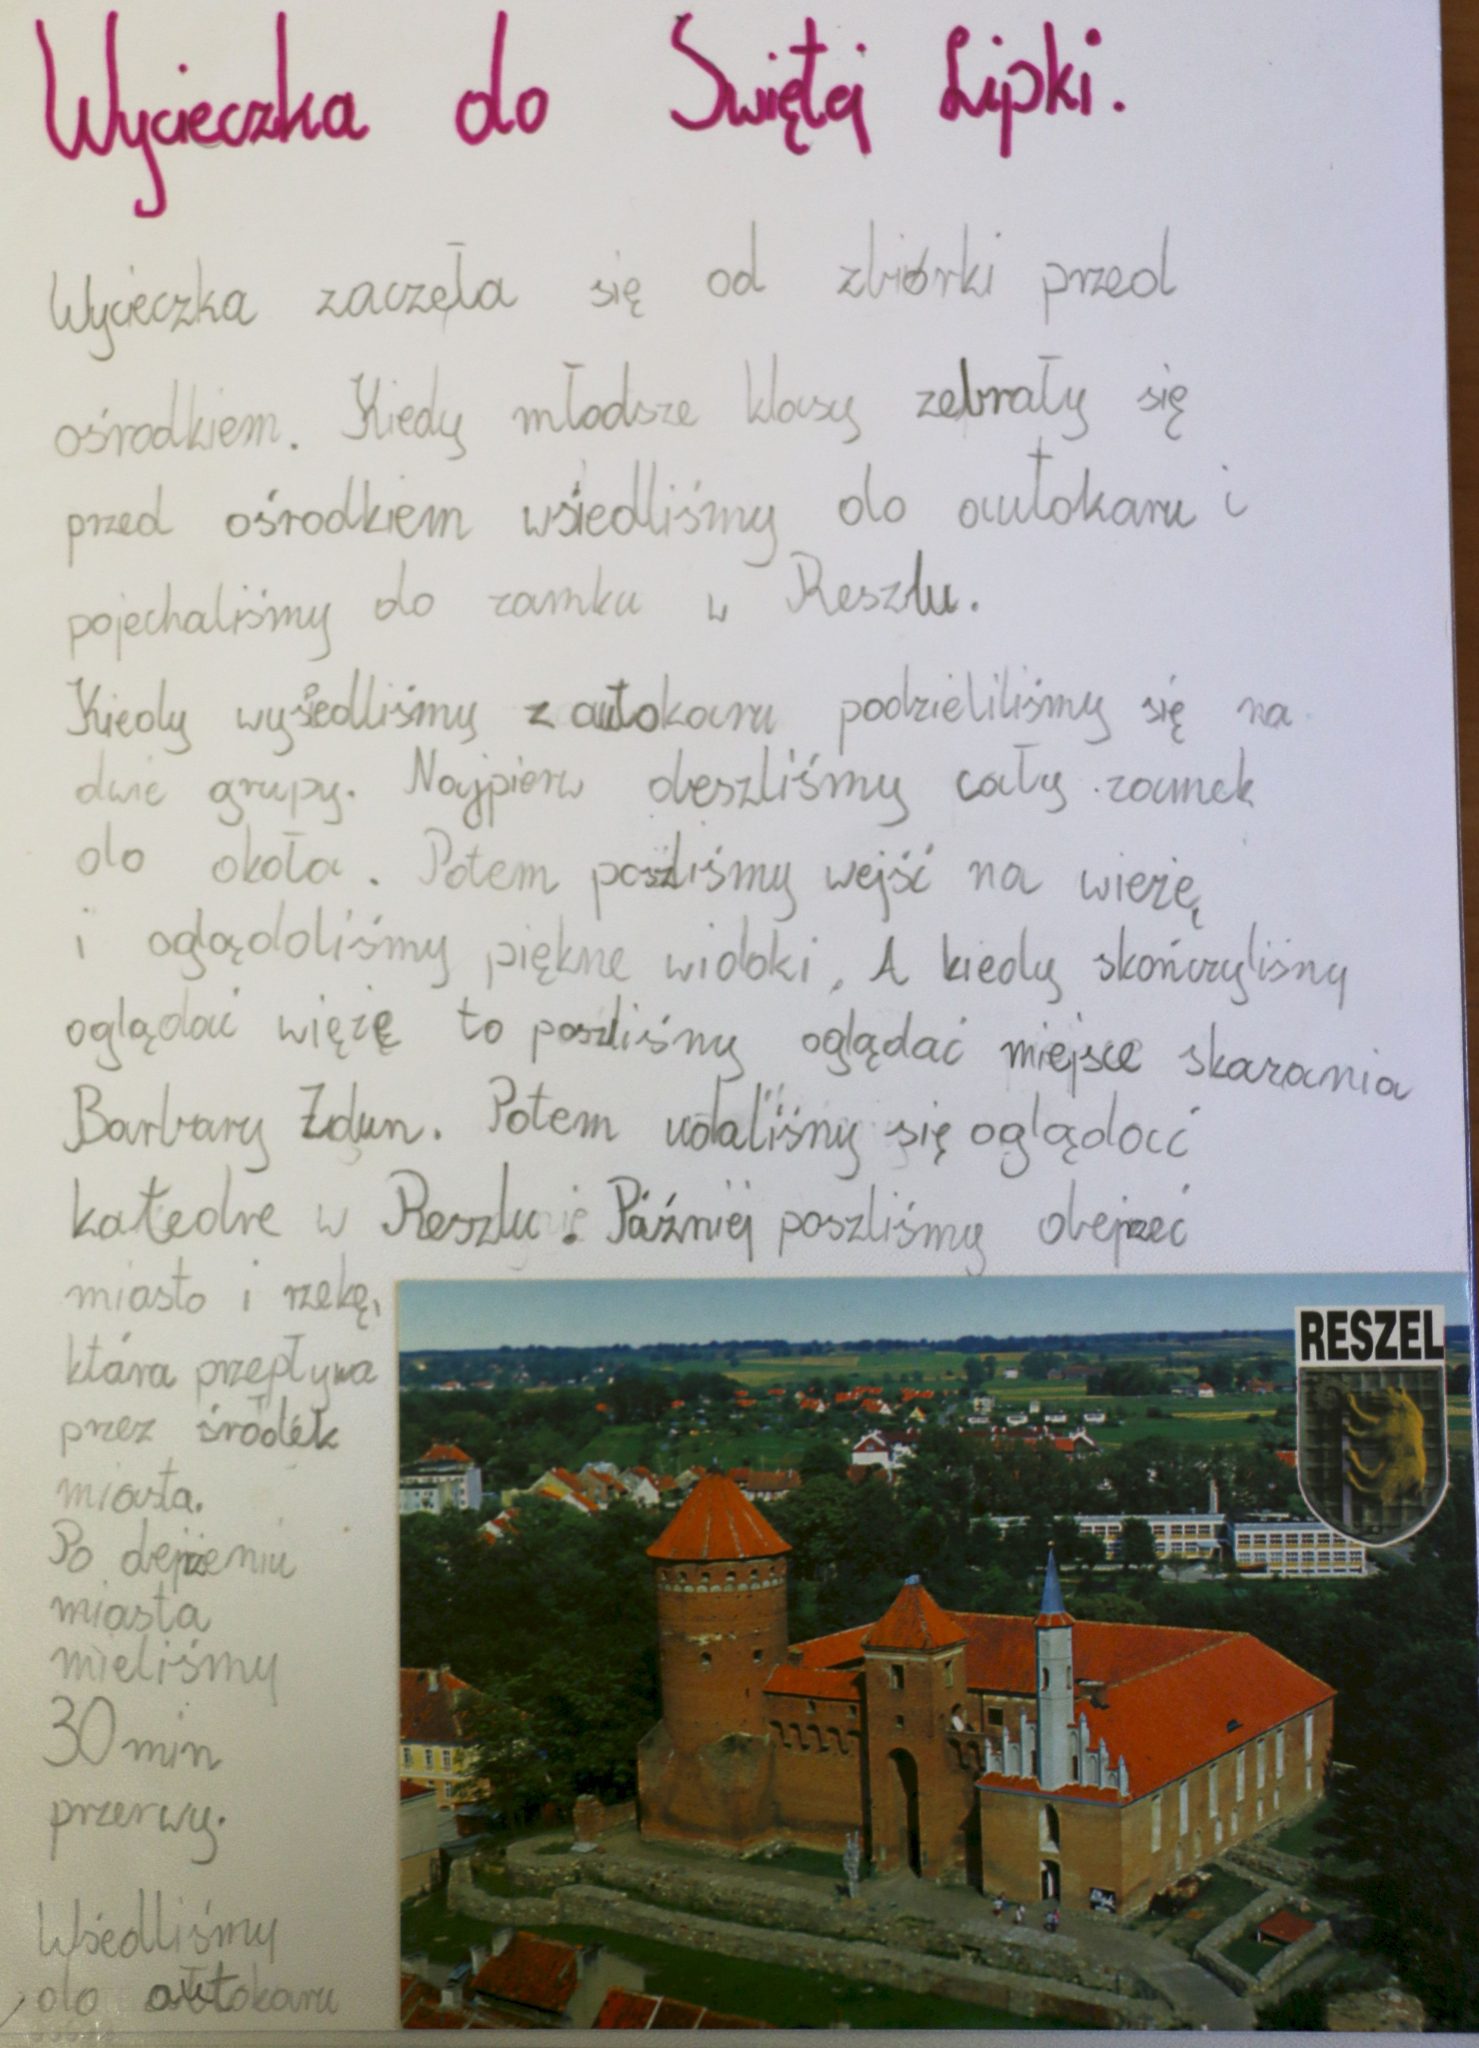 Wycieczka do Swiętej Lipki.
Wycieczka zaczęła się od zbiórki przed
ośrodkiem. Kiedy młodsze klasy zebrały się
przed ośrodkiem wsiedliśmy do autokaru i
pojechaliśmy do zamku w Reszlu.
Kiedy wysiedliśmy z autokaru podzieliliśmy się na
dwie grupy. Najpierw obeszliśmy cały zamek
do okoła. Potem poszliśmy wejść na wieżę
i oglądoliśmy piękne widoki. A kiedy skończyliśmy
oglądać więżę to poszliśmy oglądać miejsce skazania
Barbary Zdun. Potem udaliśmy się oglądać
katedre w Reszlu. Póżniej poszliśmy obejrzeć
miasto i rzekę,
która przepływa
przez środek
miasta.
Po obejrzeniu
miasta
mieliśmy
30 min
przerwy.
Wśedliśmy
do autokaru
RESZEL